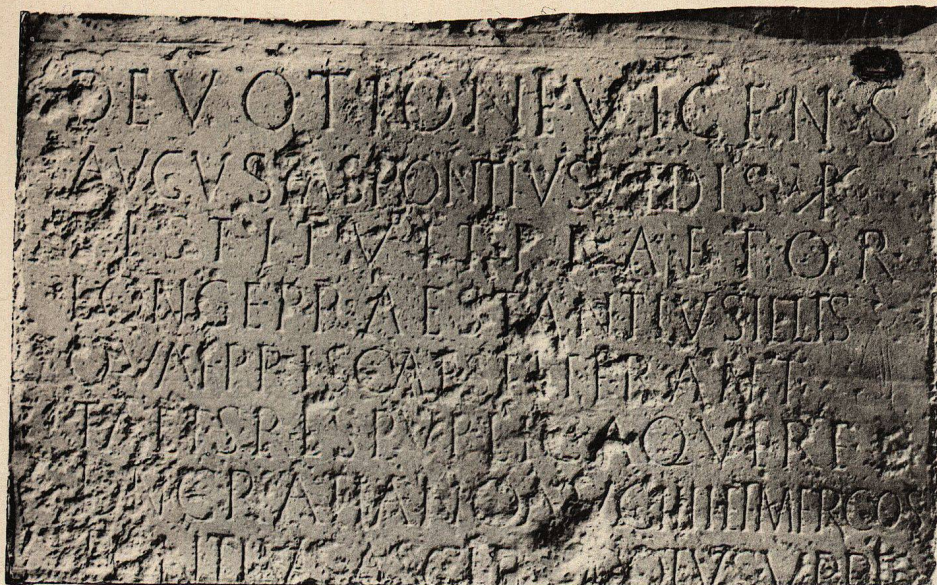 DEVOTIONE VIGENS
AVGVSTAS PONTIVS AEDIS ☧
RESTITVIT PRAETOR
LONGE PRAESTANTIVS ILLIS
QVAE PRISCAE STETERANT
TALES RESPVBLICA QVERE
DN GRATIANO AVG IIII ET MER COS
PONTIVS ASCLEPIODOTVS VPPD